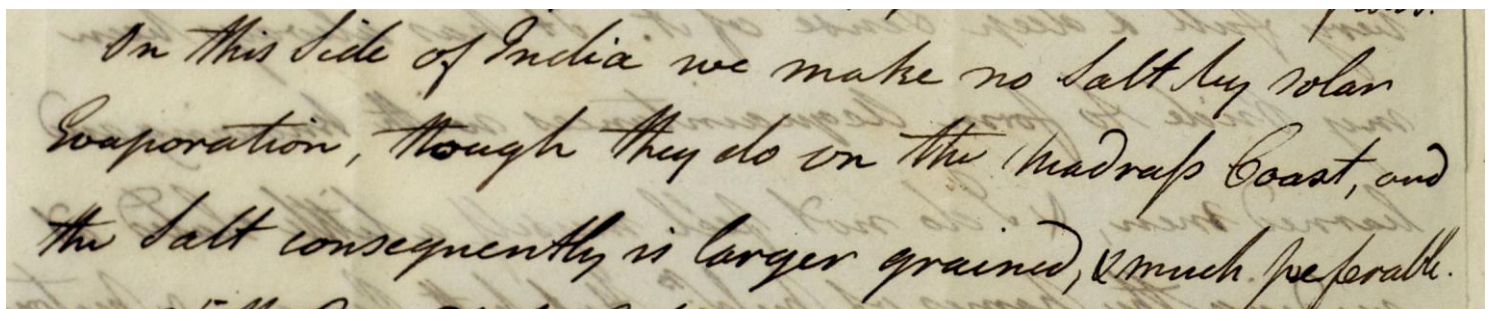 On this Side of India we make no Salt by solar
Evaporation, though they do on the Madrass Coast, and
the Salt consequently is larger grained, & much peferable.